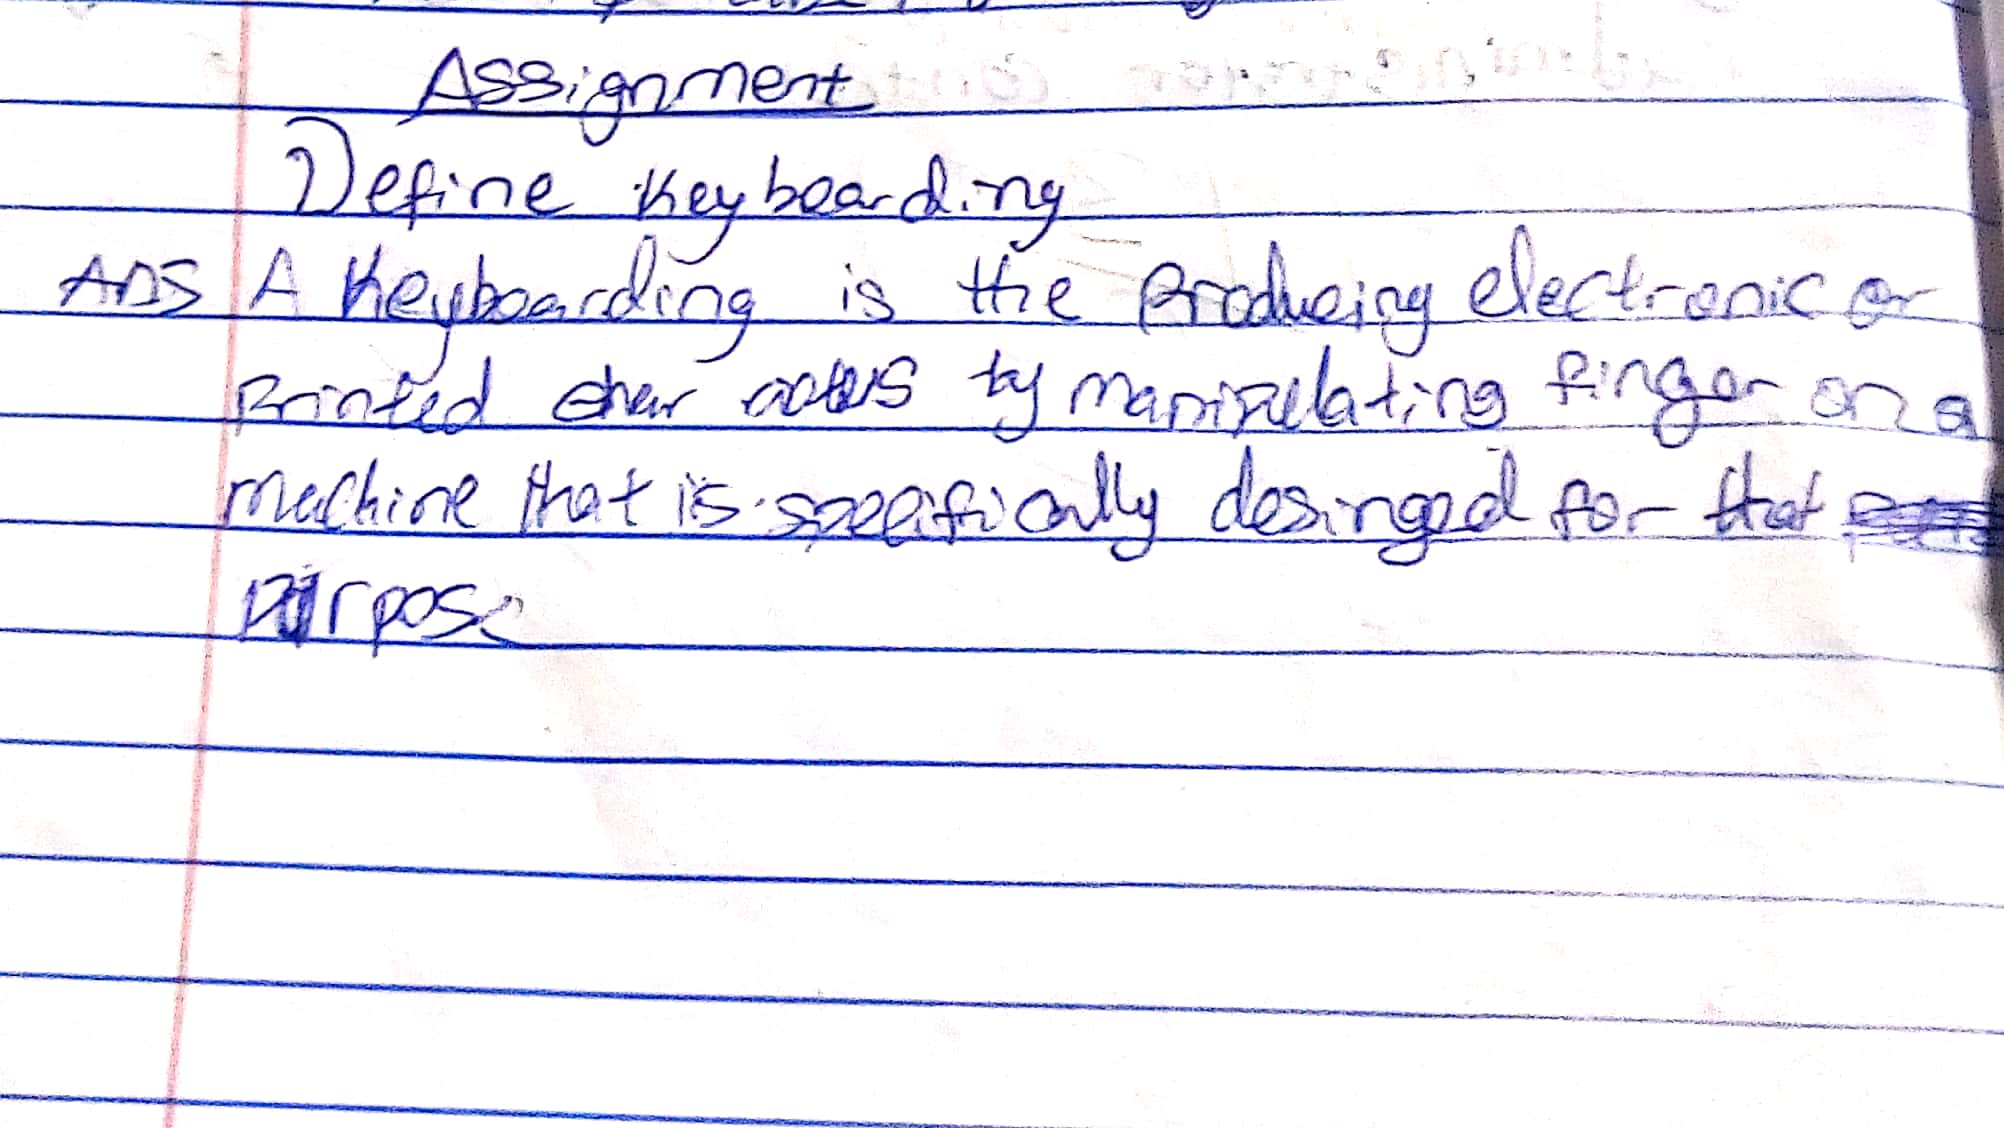 Assignment
Define Keyboarding
Ans A Keyboarding is the Producing electronic or
Printed char by manipulating finger on a
machine that is specifically desinged for that
purpose